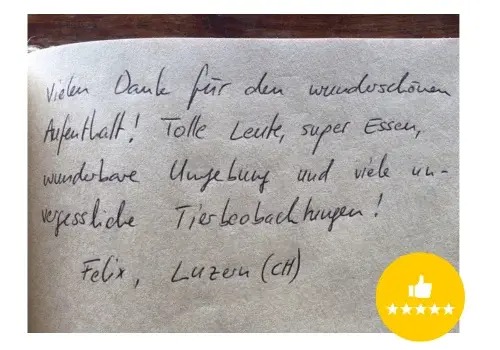 Vielen Dank für den wunderschönen
Aufenthalt! Tolle Leute, super Essen,
wunderbare Umgebung und viele un-
vergessliche Tierbeobachtungen!
Felix, Luzern (CH)